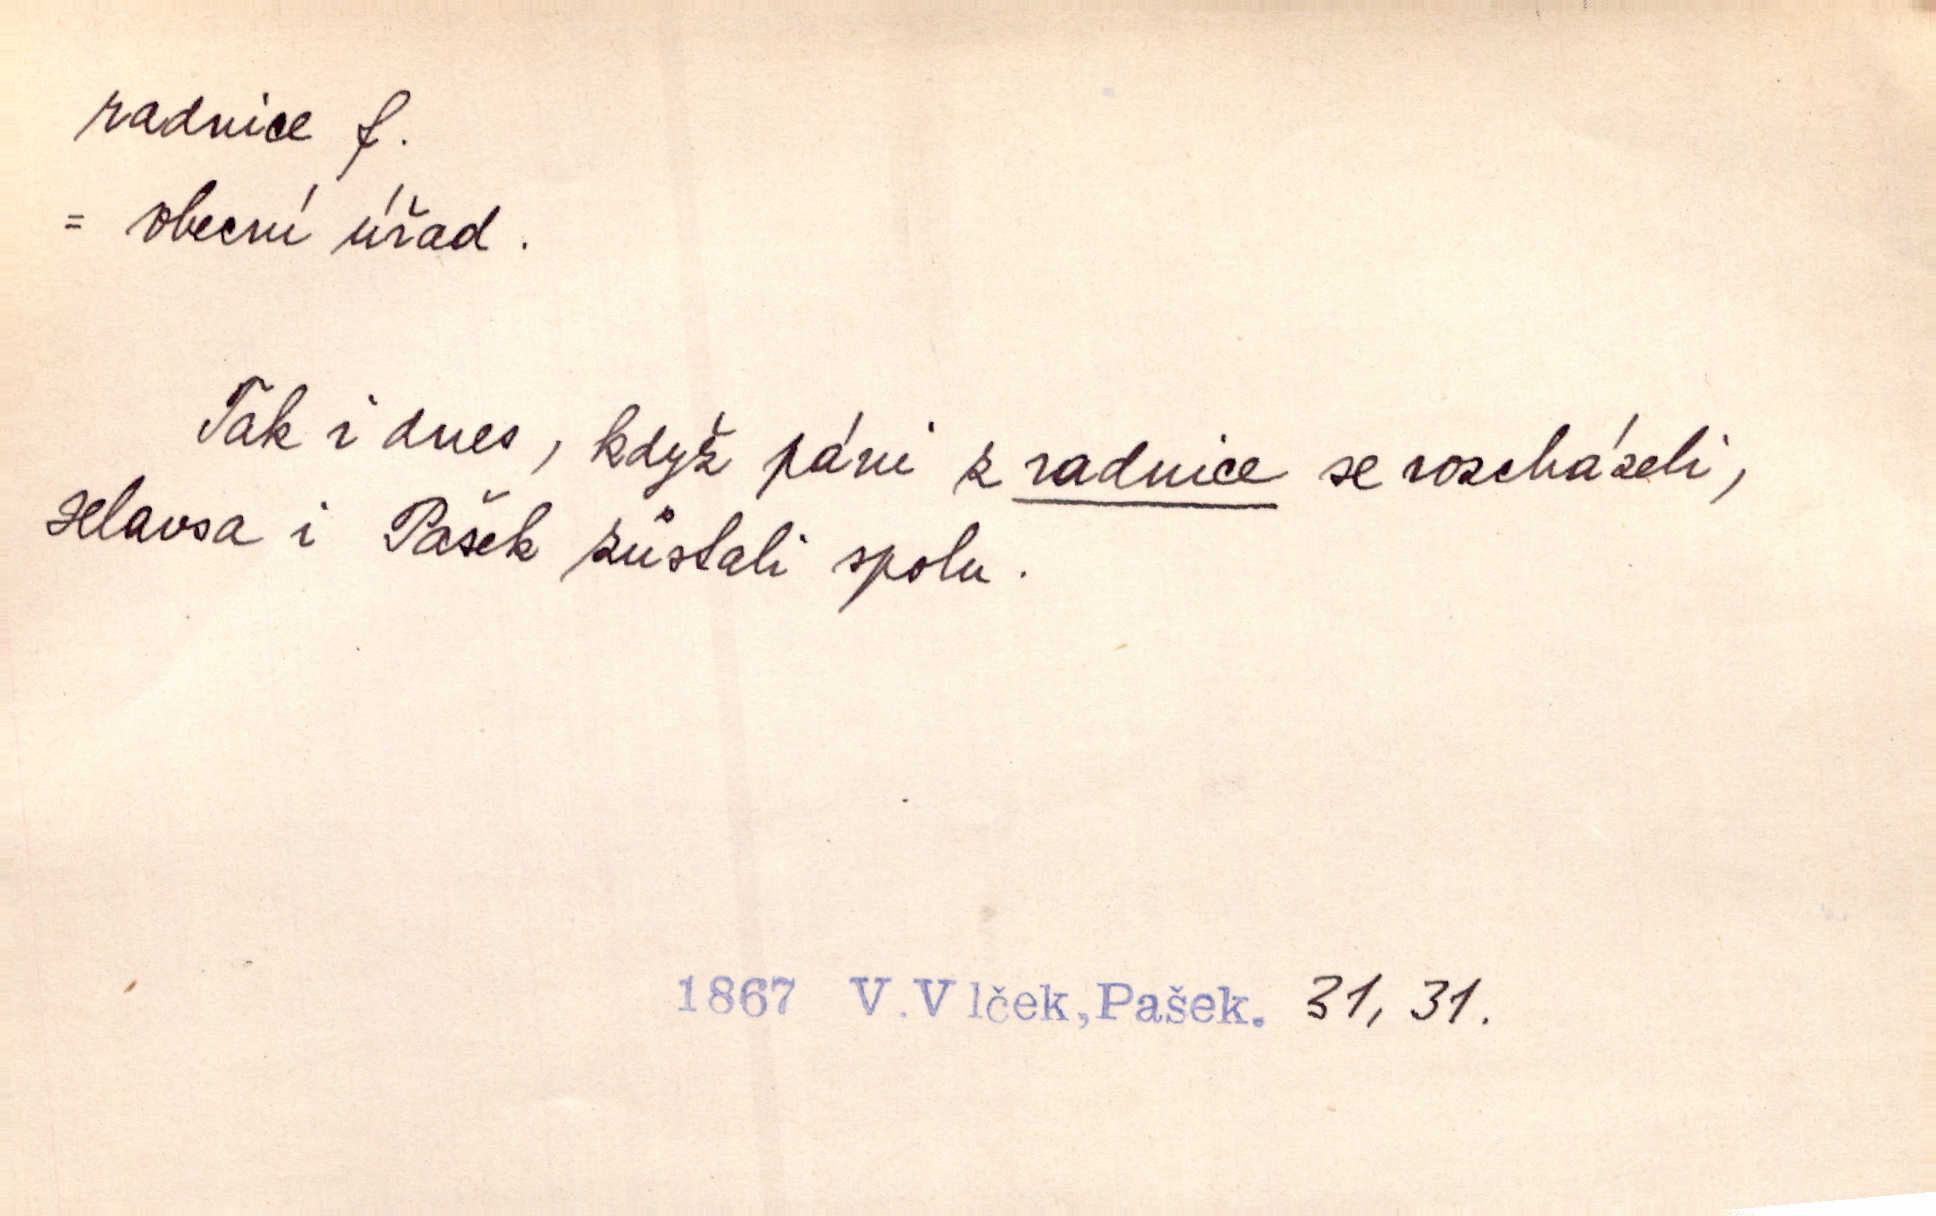 radnice f.
= obecní úřad.
Tak i dnes, když páni z radnice se rozcházeli,
Hlavsa i Pašek zůstali spolu.
1867 V. Vlček, Pašek. 31, 31.